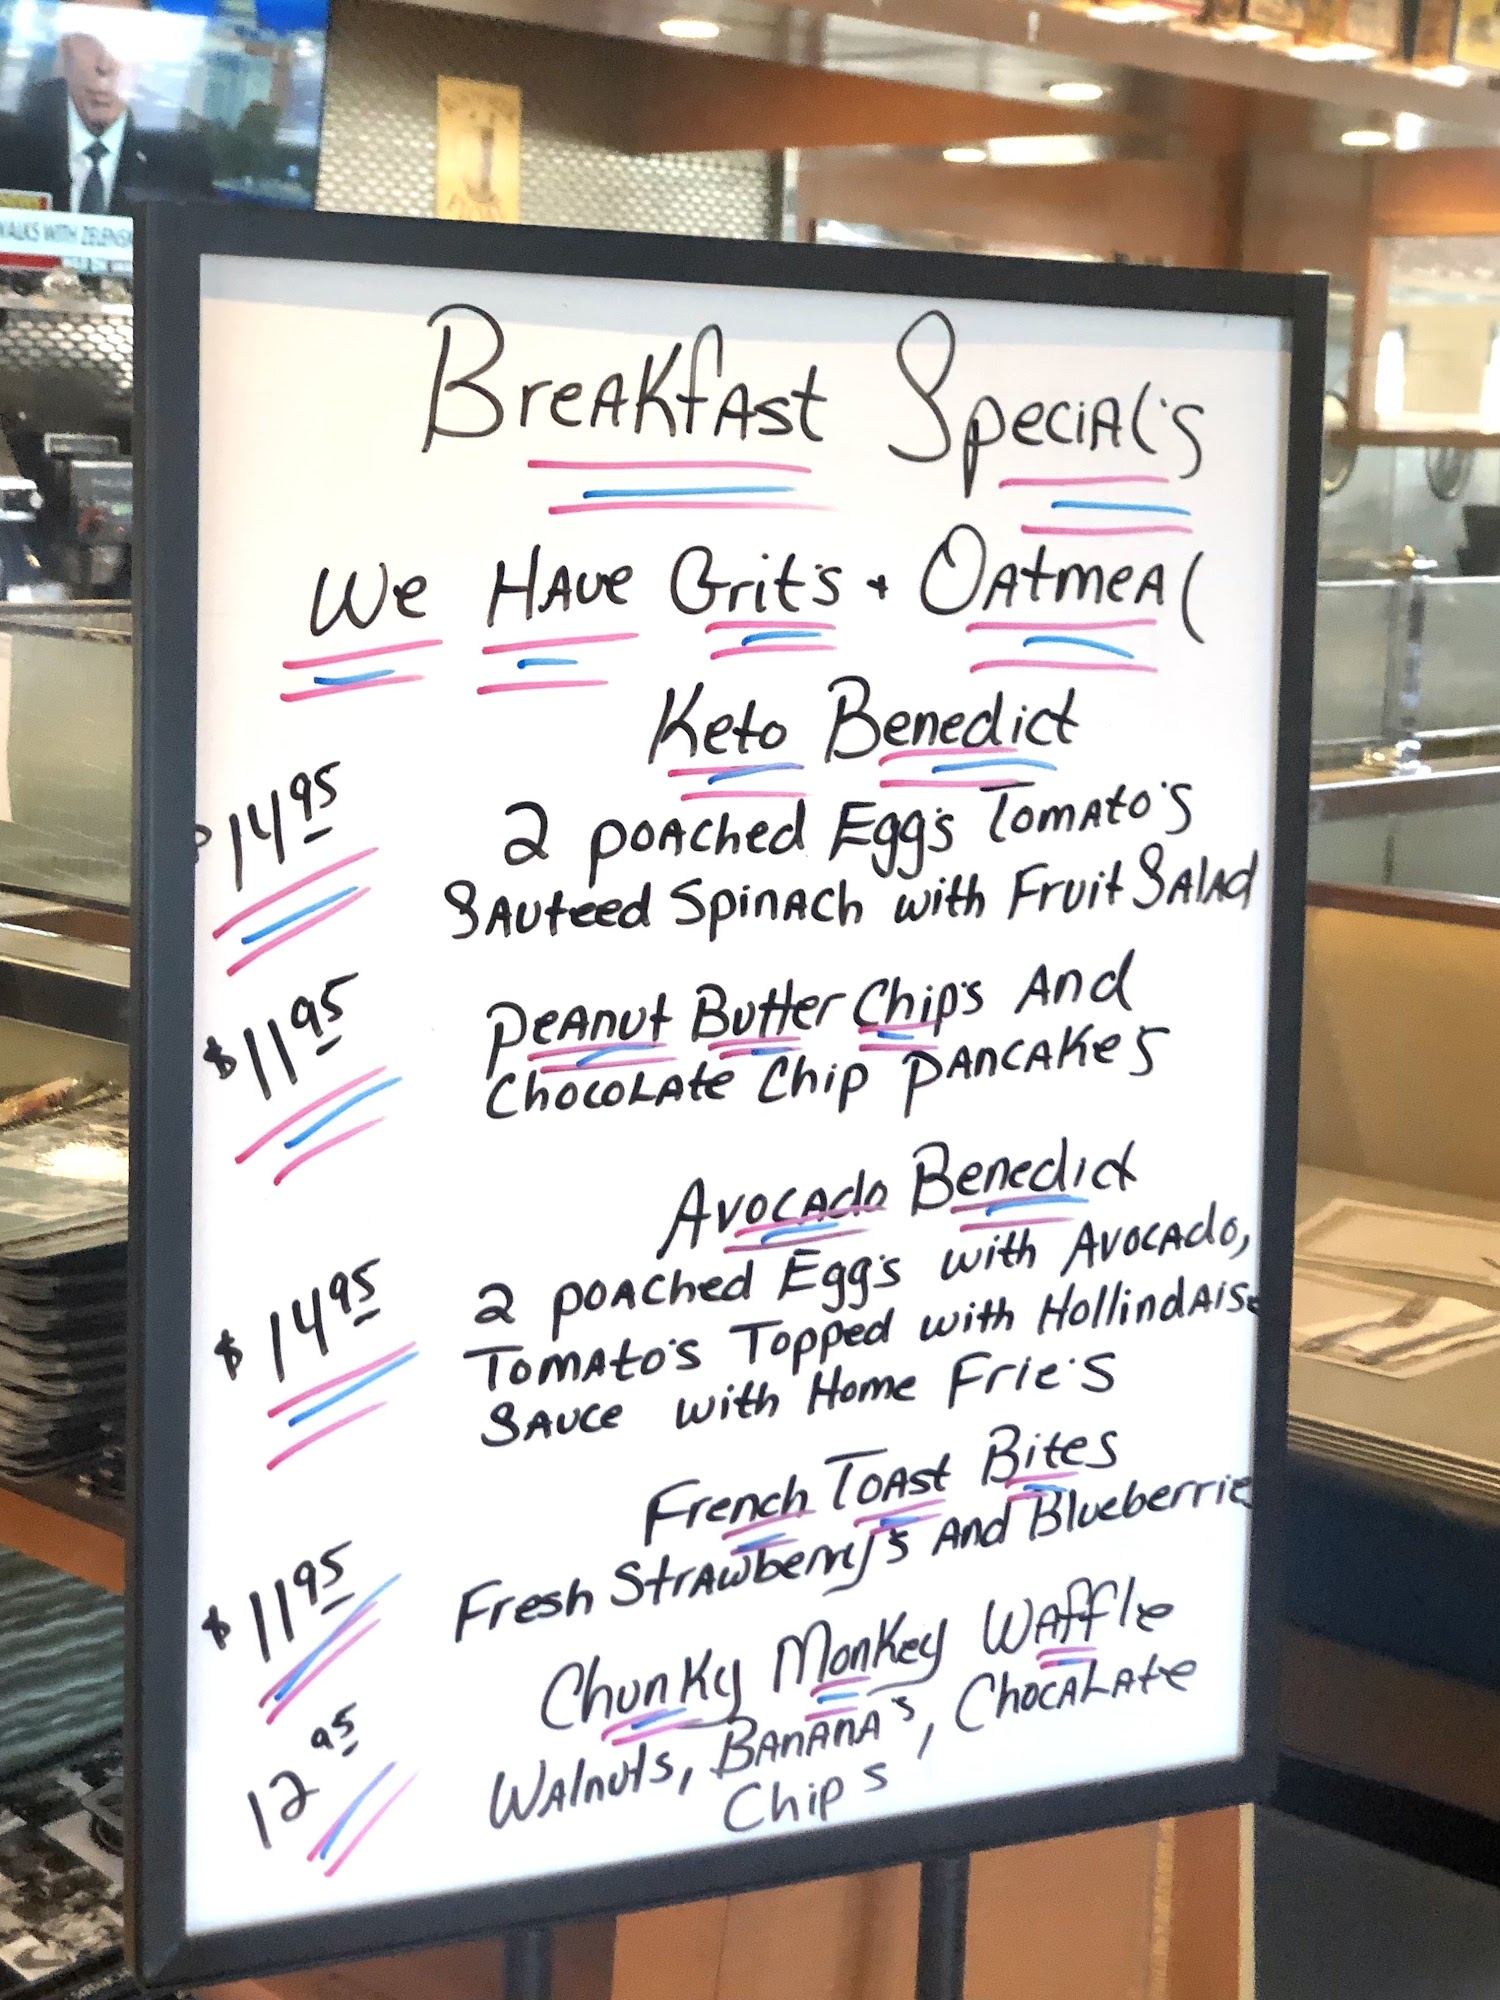 WALKS WITH ZELENSK
Breakfast Special's
We Have Grit's + Oatmeal
Keto Benedict
$14.95
2 poached Egg's Tomato's
Sauteed Spinach with Fruit Salad
$11.95
Peanut Butter Chip's And
Chocolate Chip pancake's
Avocado Benedict
$14.95
2 poached Egg's with Avocado,
Tomato's Topped with Hollindaise
Sauce with Home Frie's
French Toast Bites
$11.95
Fresh Strawberry's And Blueberrie
Chunky Monkey Waffle
12.95
Walnuts, Banana's, Chocalate
Chips